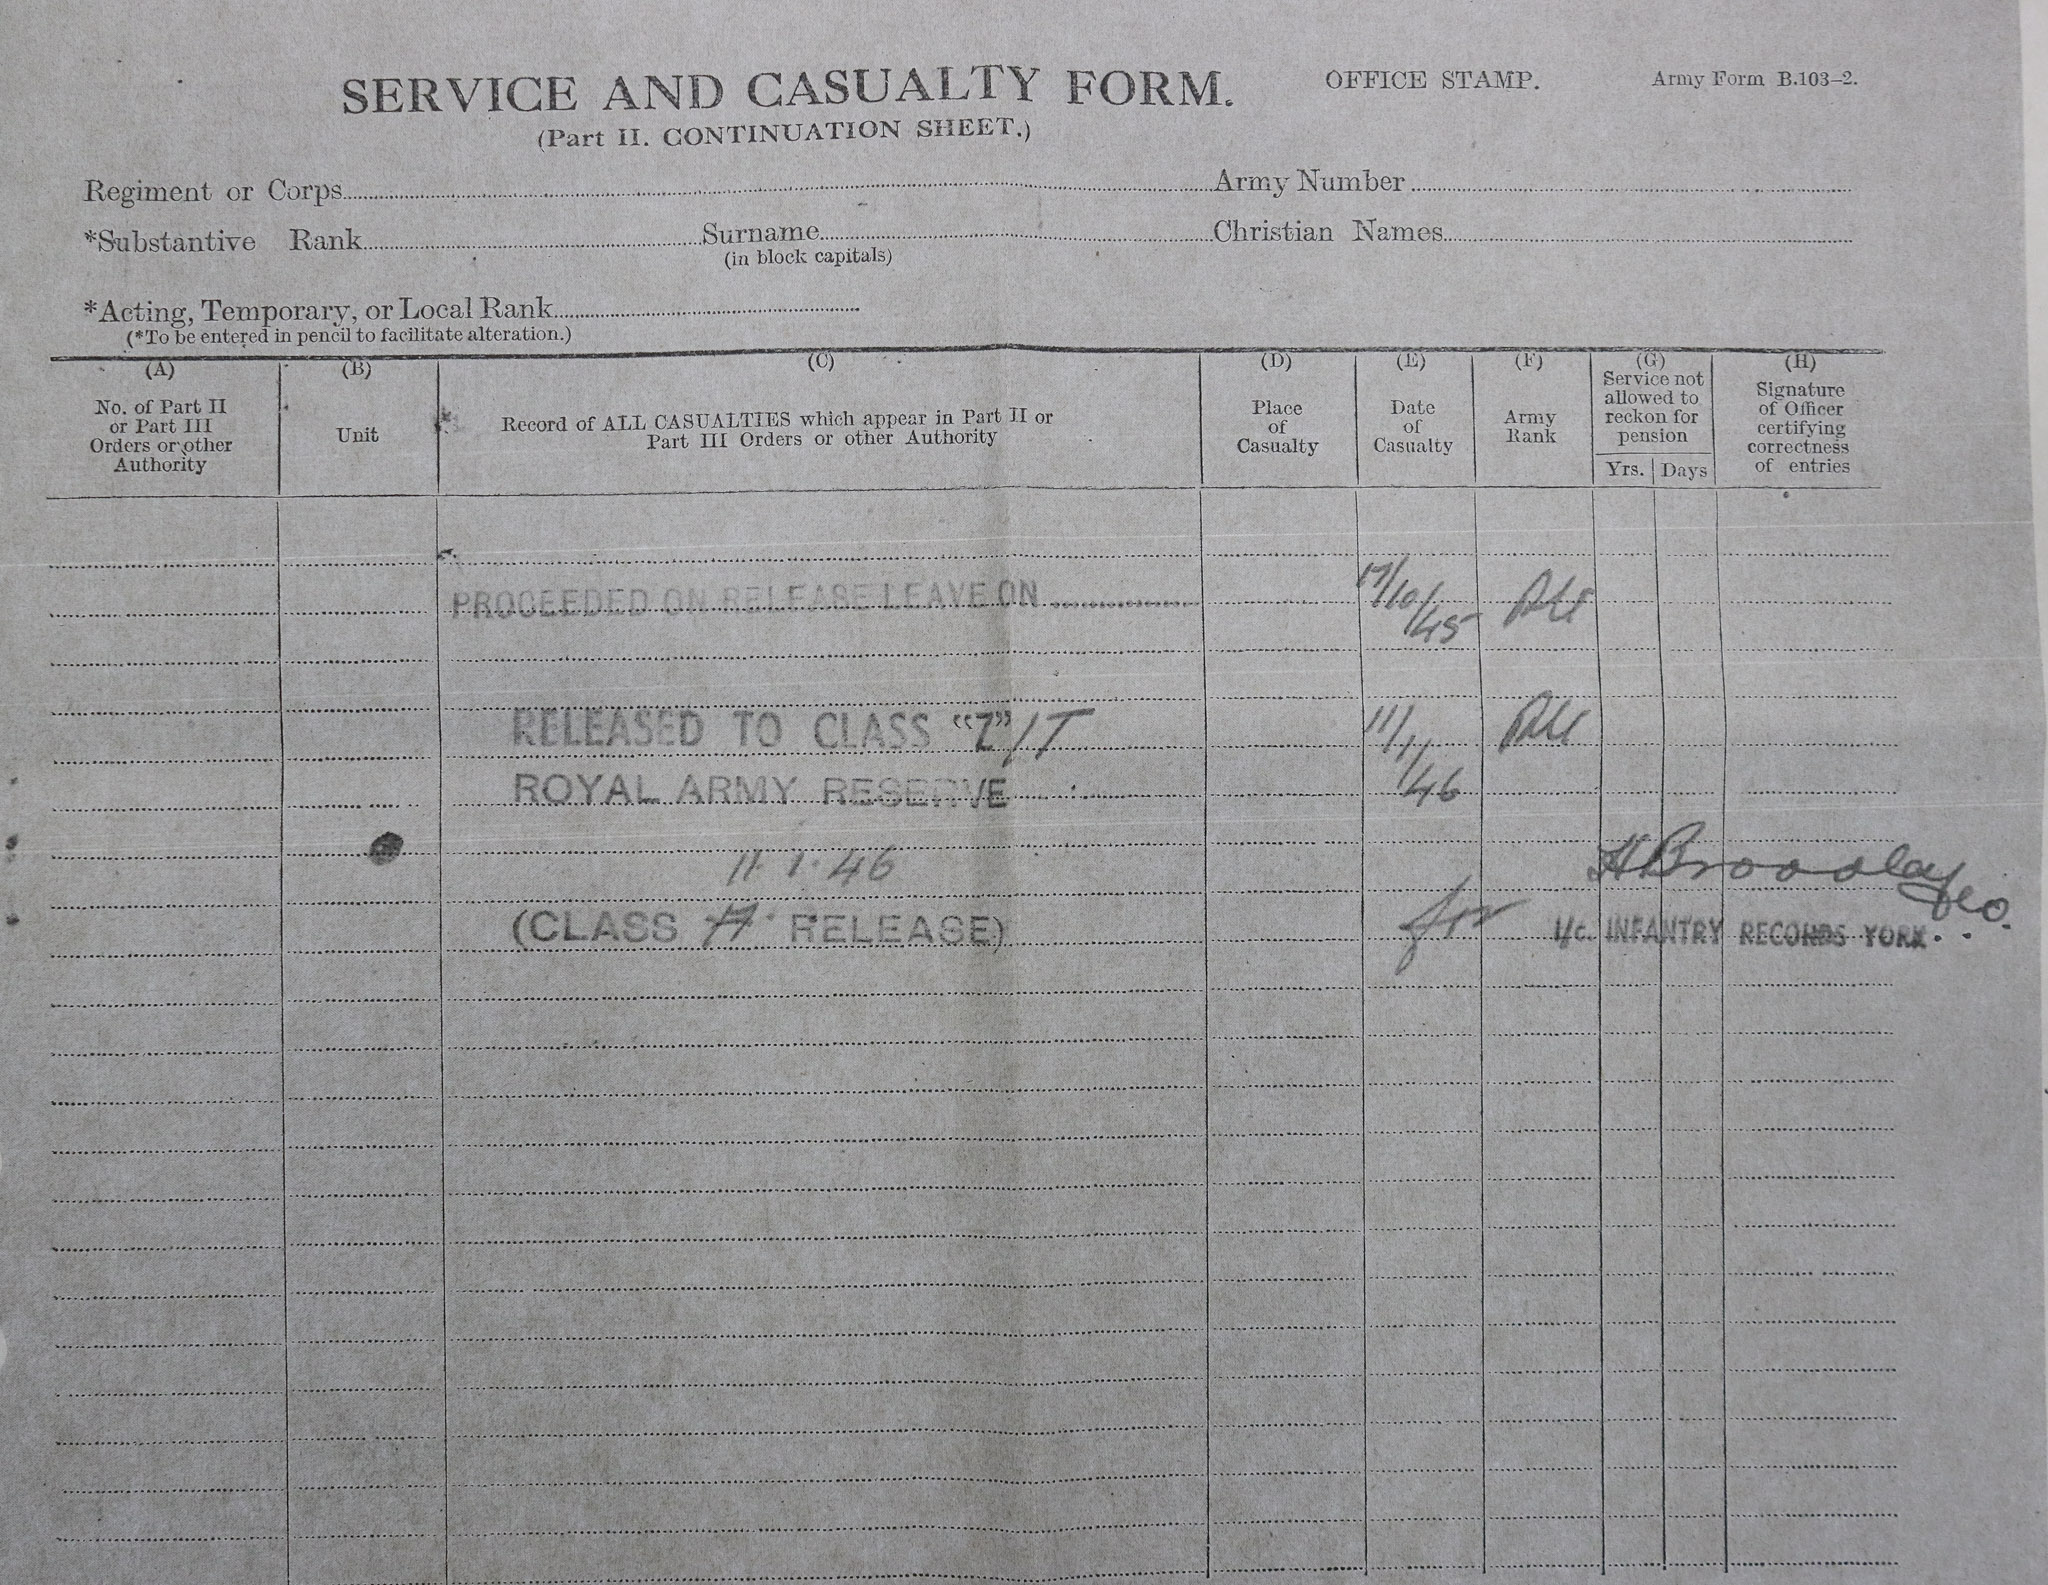 SERVICE AND CASUALTY FORM. OFFICE STAMP. Army Form B.103-2.
(Part II. CONTINUATION SHEET.)
Regiment or Corps Army Number
*Substantive Rank Surname Christian Names
(in block capitals)
*Acting, Temporary, or Local Rank
(*To be entered in pencil to facilitate alteration.)
(A) (B) (C) (D) (E) (F) (G) (H)
No. of Part II or Part III Orders or other Authority
Unit
Record of ALL CASUALTIES which appear in Part II or
Part III Orders or other Authority
Place of Casualty
Date of Casualty
Army Rank
Service not allowed to reckon for pension
Yrs. Days
Signature of Officer certifying correctness of entries
PROCEEDED ON RELEASE LEAVE ON 17/10/45 Pte
RELEASED TO CLASS "Z"/T 11/1/46 Pte
ROYAL ARMY RESERVE
11.1.46 H Broadley
(CLASS A RELEASE) for I/c. INFANTRY RECORDS YORK.